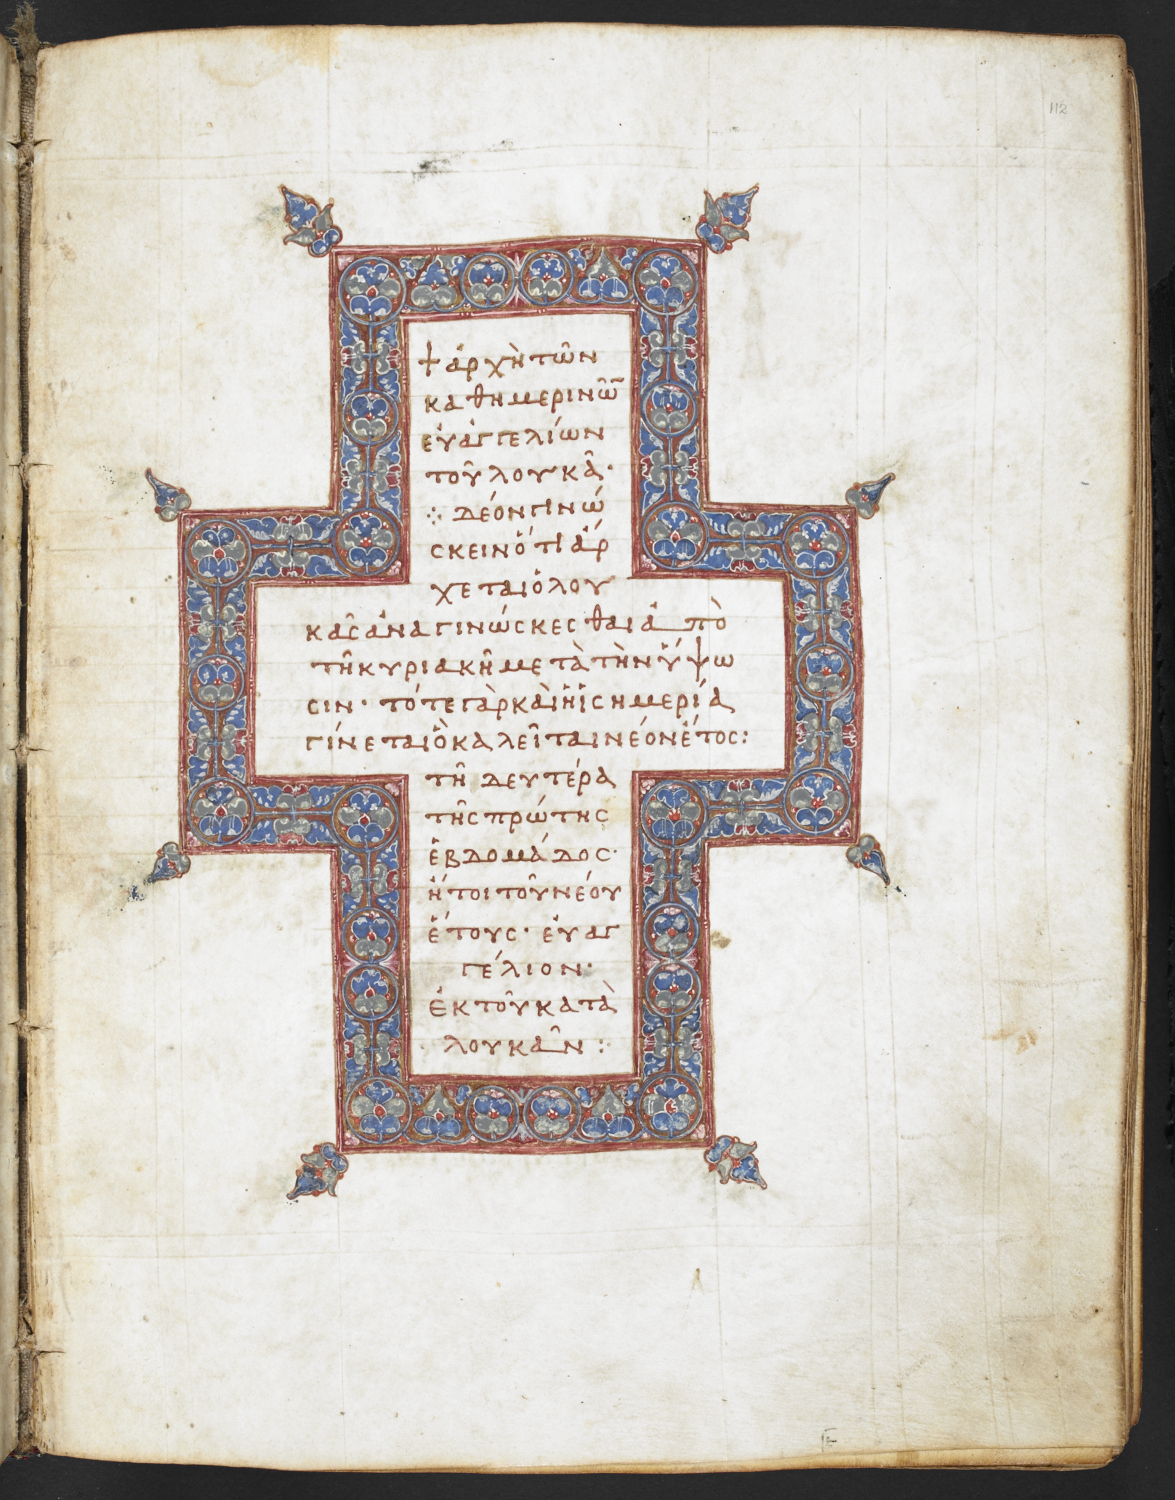 112
☩ ἀρχὴ τῶν
καθημερινῶ̅
εὐαγγελίων
τοῦ λουκᾶ·
⁘ δέον γινώ
σκειν ὅτι ἄρ
χεται ὁ λου
κᾶς ἀναγινώσκεσθαι ἀπὸ
τῆ κυριακῆ μετὰ τὴν ὕψω
σιν· τότε γὰρ καὶ ἡ ἰσημερία
γίνεται ὃ καλεῖται νέον ἔτος:
τῆ δευτέρα
τῆς πρώτης
ἑβδομάδος·
ἤτοι τοῦ νέου
ἔτους· εὐαγ
γέλιον·
ἐκ τοῦ κατὰ
λουκᾶν :·